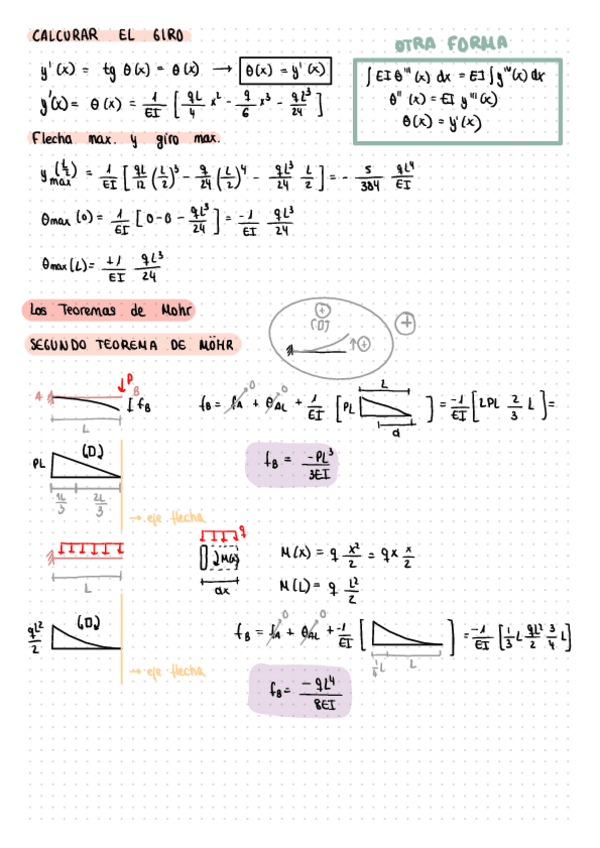 CALCULAR EL GIRO
OTRA FORMA
y'(x) = tg θ(x) = θ(x) → θ(x) = y'(x)
∫ EI θ'''(x) dx = EI ∫ y^IV(x) dx
θ''(x) = EI y'''(x)
θ(x) = y'(x)
y'(x) = θ(x) = 1/EI [ qL/4 x² - q/6 x³ - qL³/24 ]
Flecha max. y giro max.
y max (L/2) = 1/EI [ qL/12 (L/2)³ - q/24 (L/2)⁴ - qL³/24 L/2 ] = - 5/384 qL⁴/EI
θmax (0) = 1/EI [ 0-0 - qL³/24 ] = -1/EI qL³/24
θmax (L) = +1/EI qL³/24
Los Teoremas de Mohr
SEGUNDO TEOREMA DE MÖHR
+
+
+
P
A B
fB
L
fB = fA 0 + θAL 0 + 1/EI [ PL L d ] = -1/EI [ LPL 2/3 L ] =
PL (D)
1L/3 2L/3
fB = -PL³/3EI
→ eje flecha
q
L
M(x)
dx
M(x) = q x²/2 = qx x/2
M(L) = q L²/2
qL²/2 (D)
fB = fA 0 + θAL 0 + -1/EI [ 1/4 L L ] = -1/EI [ 1/3 L qL²/2 3/4 L ]
→ eje flecha
fB = -qL⁴/8EI